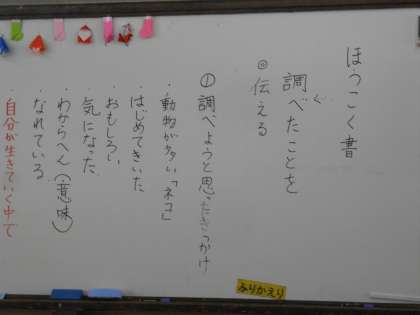 ほうこく書
調べたことを
ぐ
◎伝える
① 調べようと思ったきっかけ
・動物が多い「ネコ」
・はじめてきいた
・おもしろい
・気になった
・わからへん(意味)
・なれている
・自分が生きていく中で
ふりかえり